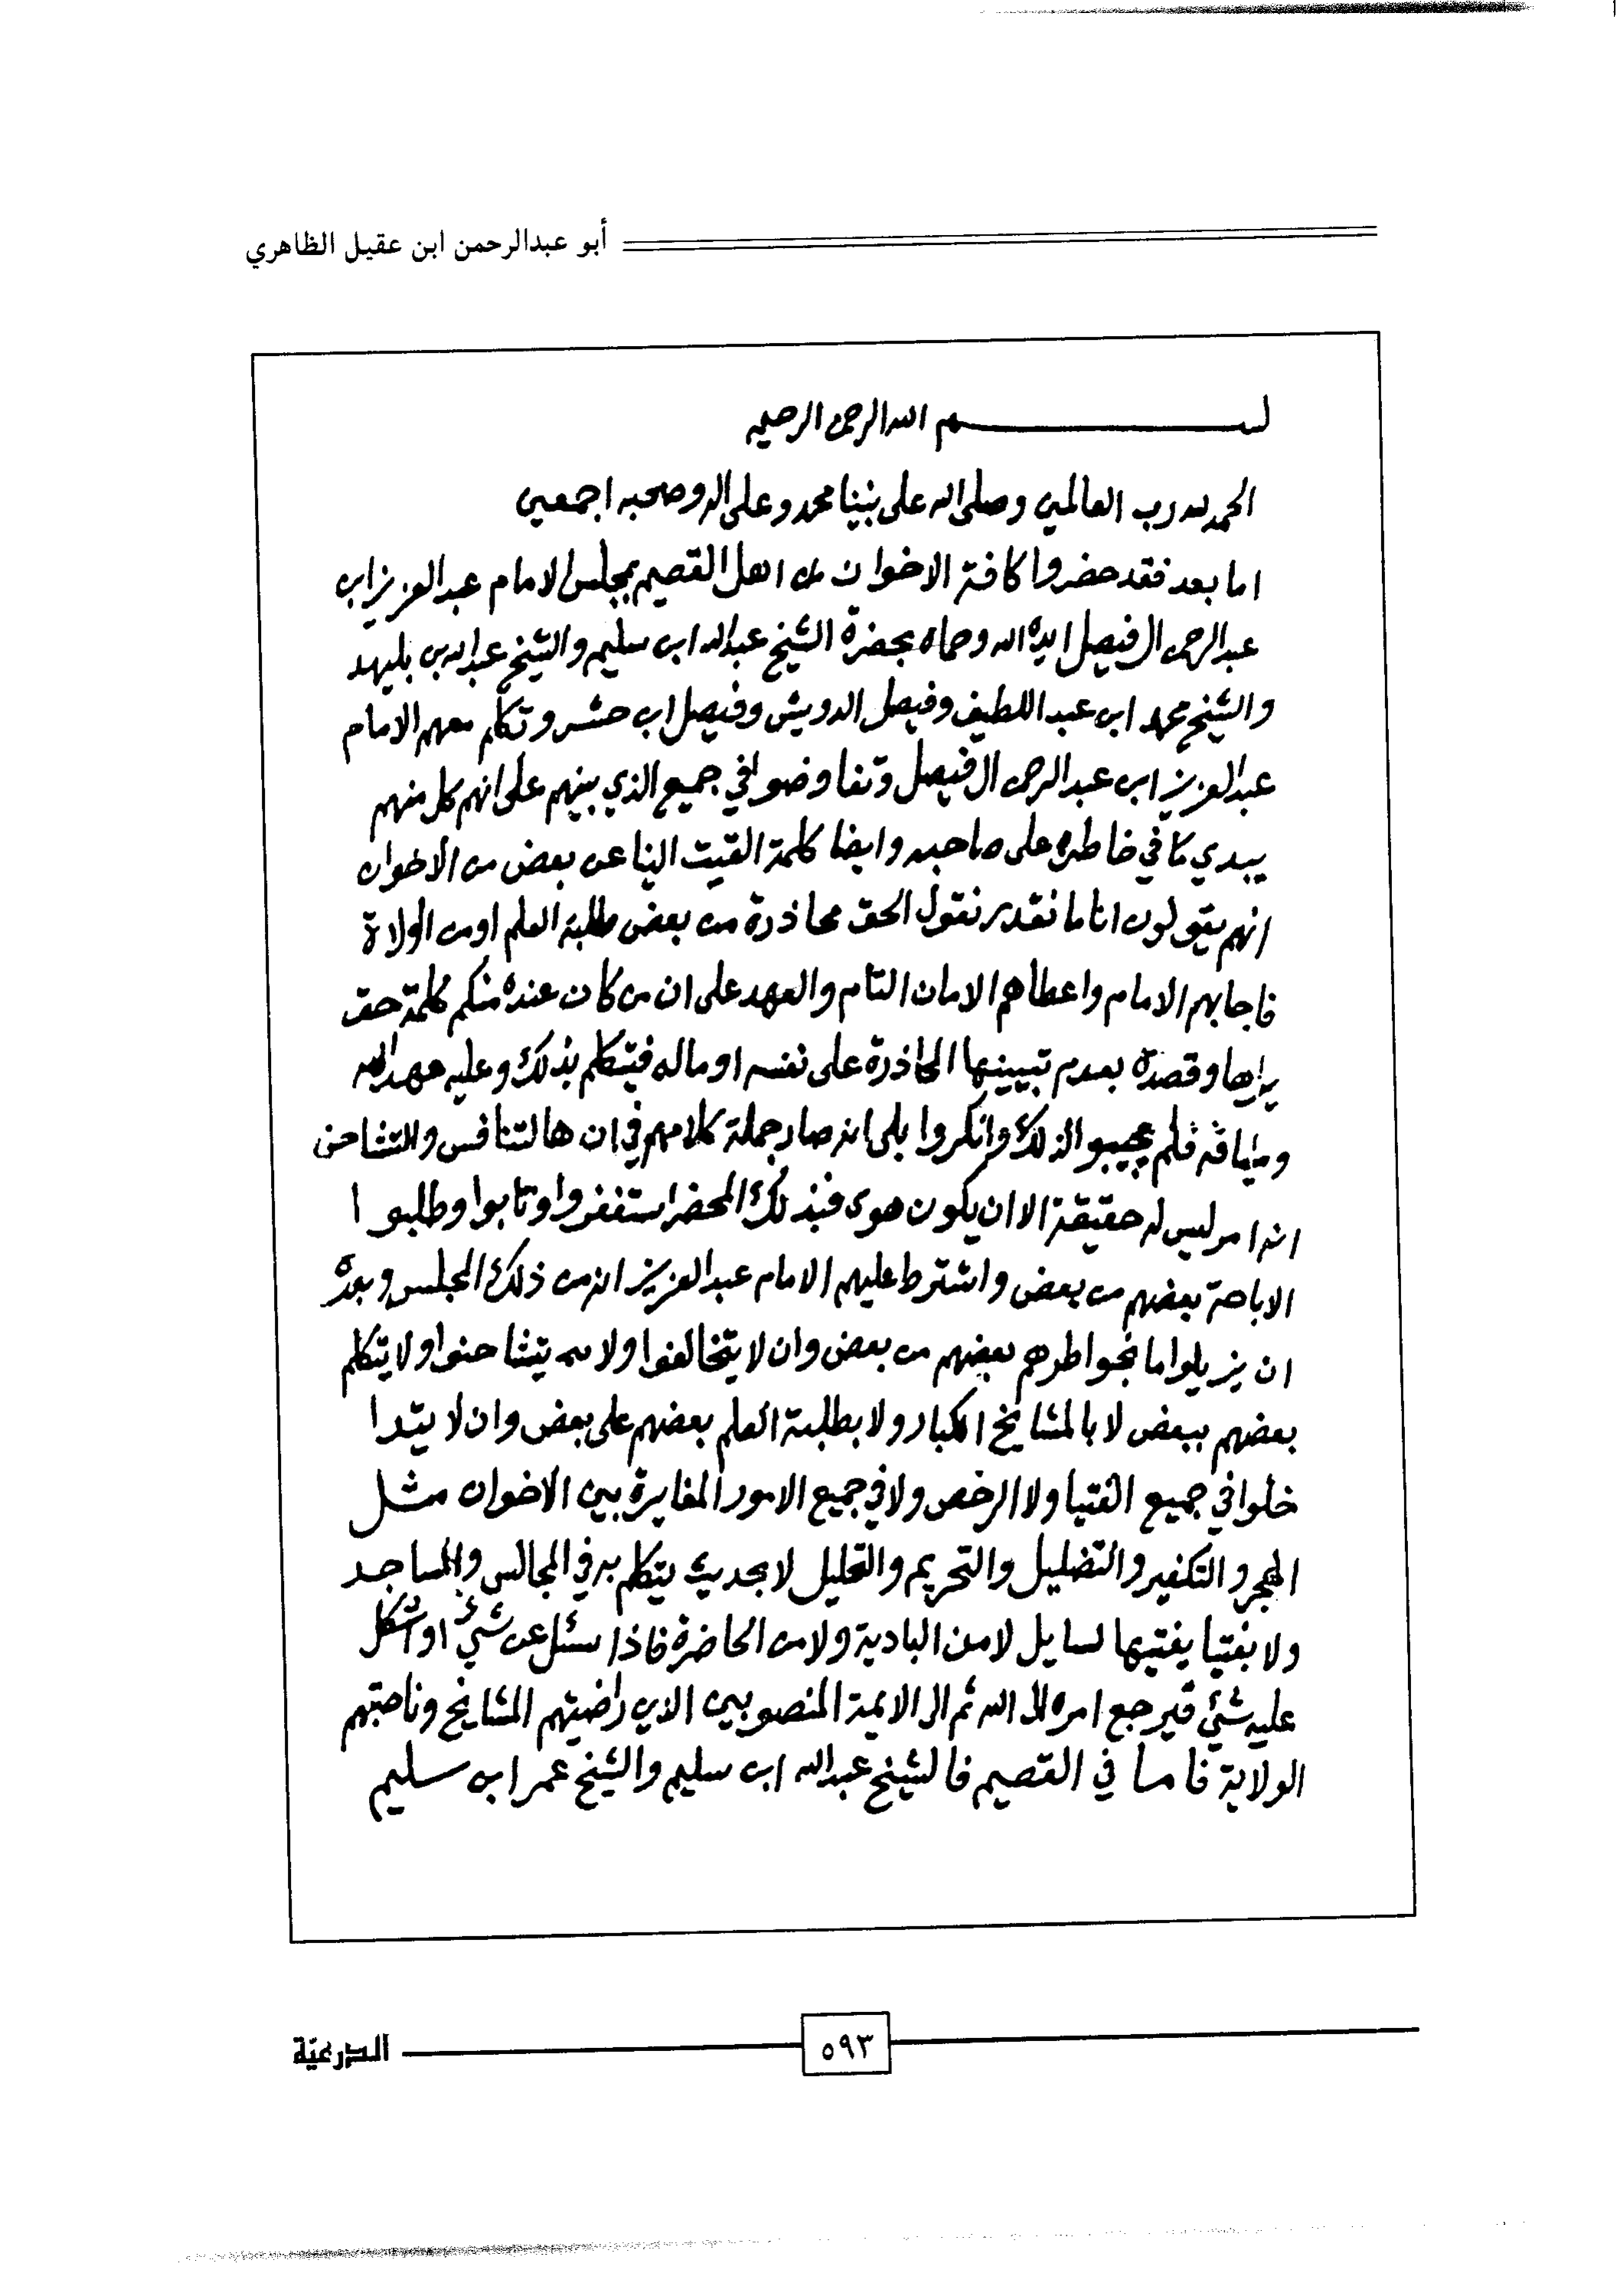 أبو عبدالرحمن ابن عقيل الظاهري
بسم الله الرحمن الرحيم
الحمد لله رب العالمين وصلى الله على نبينا محمد وعلى اله وصحبه اجمعين
اما بعد فقد حضروا كافة الاخوان من اهل القصيم بمجلس الامام عبد العزيز ابن
عبد الرحمن ال فيصل ايده الله وحماه بحضرة الشيخ عبد الله ابن سليم والشيخ عبد الله بن بليهد
والشيخ محمد ابن عبد اللطيف وفيصل الدويش وفيصل اب حشر وتكلم معهم الامام
عبد العزيز ابن عبد الرحمن ال فيصل وتفاوضوا في جميع الذي بينهم على انهم كل منهم
يبدي ما في خاطره على صاحبه وايضا كلمة القيت الينا عن بعض من الاخوان
انهم يقولون انا ما نقدر نقول الحق محاذرة من بعض طلبة العلم او من الولاة
فاجابهم الامام واعطاهم الامان التام والعهد على ان من كان عنده منكم كلمة حق
يراها وقصده بعدم تبيينها المحاذرة على نفسه او ماله فيتكلم بذلك وعليه عهد الله
وميثاقه فلم يجيبوا لذلك وانكروا بلى انه صار جملة كلامهم في ان هالتنافس والتشاحن
انه امر ليس له حقيقة الا ان يكون هوى فبذلك المحضر استغفروا وتابوا وطلبوا
الاباحة بعضهم من بعض واشترط عليهم الامام عبد العزيز انه من ذلك المجلس وبعده
ان يزيلوا ما بخواطرهم بعضهم من بعض وان لا يتخالفوا ولا يتشاحنوا ولا يتكلم
بعضهم ببعض لا بالمشايخ الكبار ولا بطلبة العلم بعضهم على بعض وان لا يتدا
خلوا في جميع الفتيا ولا الرخص ولا في جميع الامور المغايرة بين الاخوان مثل
الهجر والتكفير والتضليل والتحريم والتحليل لا بحديث يتكلم به في المجالس والمساجد
ولا بفتيا يفتيها لسايل لا من البادية ولا من الحاضرة فاذا سئل عن شيئ او اشكل
عليه شيئ فيرجع امره الى الله ثم الى الايمة المنصوبين الذين راضيتهم المشايخ وناصبتهم
الولاية فاما في القصيم فالشيخ عبد الله ابن سليم والشيخ عمر ابن سليم
٥٩٣
الدرعيّة